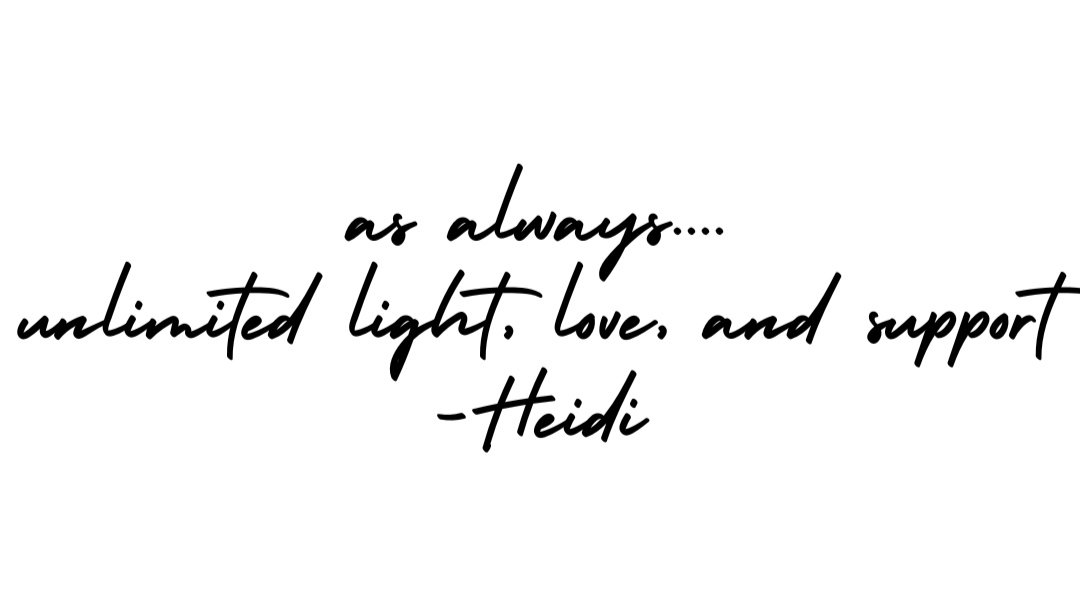 as always....
unlimited light, love, and support
-Heidi